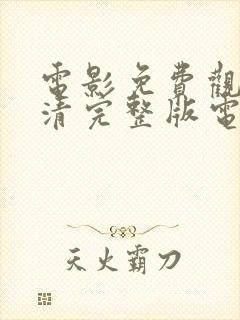 電影免費觀
清完整版電
天火霸刀